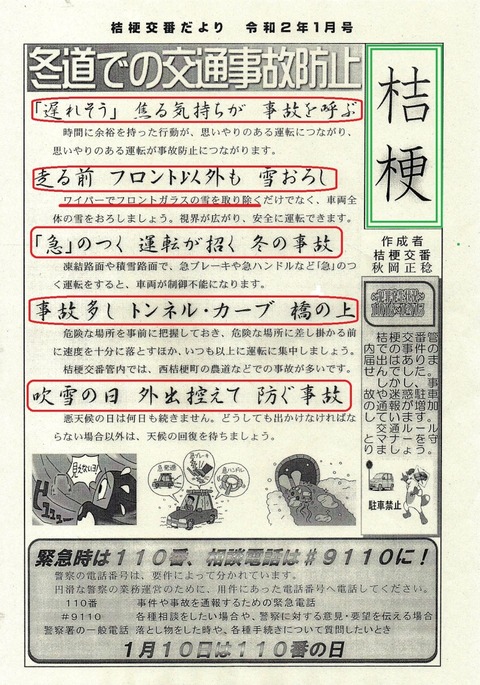 桔梗交番だより　令和２年１月号
冬道での交通事故防止
「遅れそう」　焦る気持ちが　事故を呼ぶ
時間に余裕を持った行動が、思いやりのある運転につながり、
思いやりのある運転が事故防止につながります。
走る前　フロント以外も　雪おろし
ワイパーでフロントガラスの雪を取り除くだけでなく、車両全
体の雪をおろしましょう。視界が広がり、安全に運転できます。
「急」のつく　運転が招く　冬の事故
凍結路面や積雪路面で、急ブレーキや急ハンドルなど「急」のつ
く運転をすると、車両が制御不能になります。
事故多し　トンネル・カーブ　橋の上
危険な場所を事前に把握しておき、危険な場所に差し掛かる前
に速度を十分に落とすほか、いつも以上に運転に集中しましょう。
桔梗交番管内では、西桔梗町の農道などでの事故が多いです。
吹雪の日　外出控えて　防ぐ事故
悪天候の日は何日も続きません。どうしても出かけなければな
らない場合以外は、天候の回復を待ちましょう。
桔梗
作成者
桔梗交番
秋岡正稔
桔梗交番管
内での事件の
届出はありま
せんでした。
しかし、事
故や迷惑駐車
の通報が増加
しています。
交通ルール
とマナーを守
りましょう。
駐車禁止
見えないョ!
ビュュュー
急発進
急ブレーキ
急ハンドル
緊急時は１１０番、相談電話は＃９１１０に！
警察の電話番号は、要件によって分かれています。
円滑な警察の業務運営のために、用件にあった電話番号へ電話してください。
１１０番　事件や事故を通報するための緊急電話
＃９１１０　各種相談をしたい場合や、警察に対する意見・要望を伝える場合
警察署の一般電話　落とし物をした時や、各種手続きについて質問したいとき
１月１０日は１１０番の日